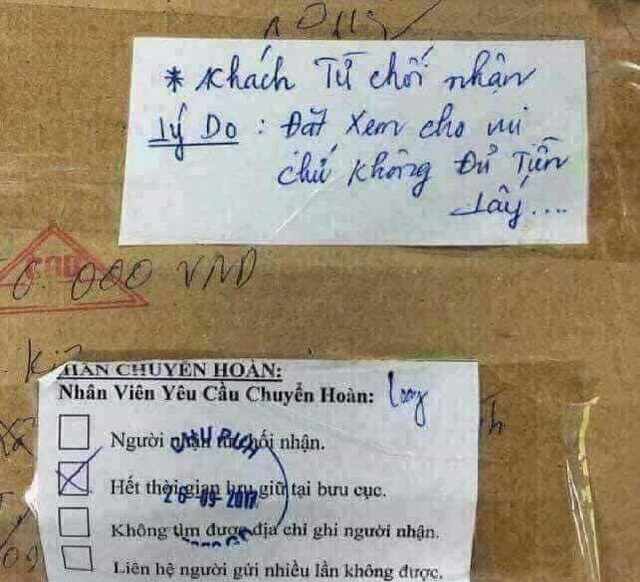 * Khách Từ chối nhận
Lý Do : Đặt xem cho vui
chứ không Đủ Tiền
Lấy....
000 VND
CHUYỂN HOÀN:
Nhân Viên Yêu Cầu Chuyển Hoàn: Long
Người nhận từ chối nhận.
Hết thời gian lưu giữ tại bưu cục.
26-09-2017
Không tìm được địa chỉ ghi người nhận.
Liên hệ người gửi nhiều lần không được.